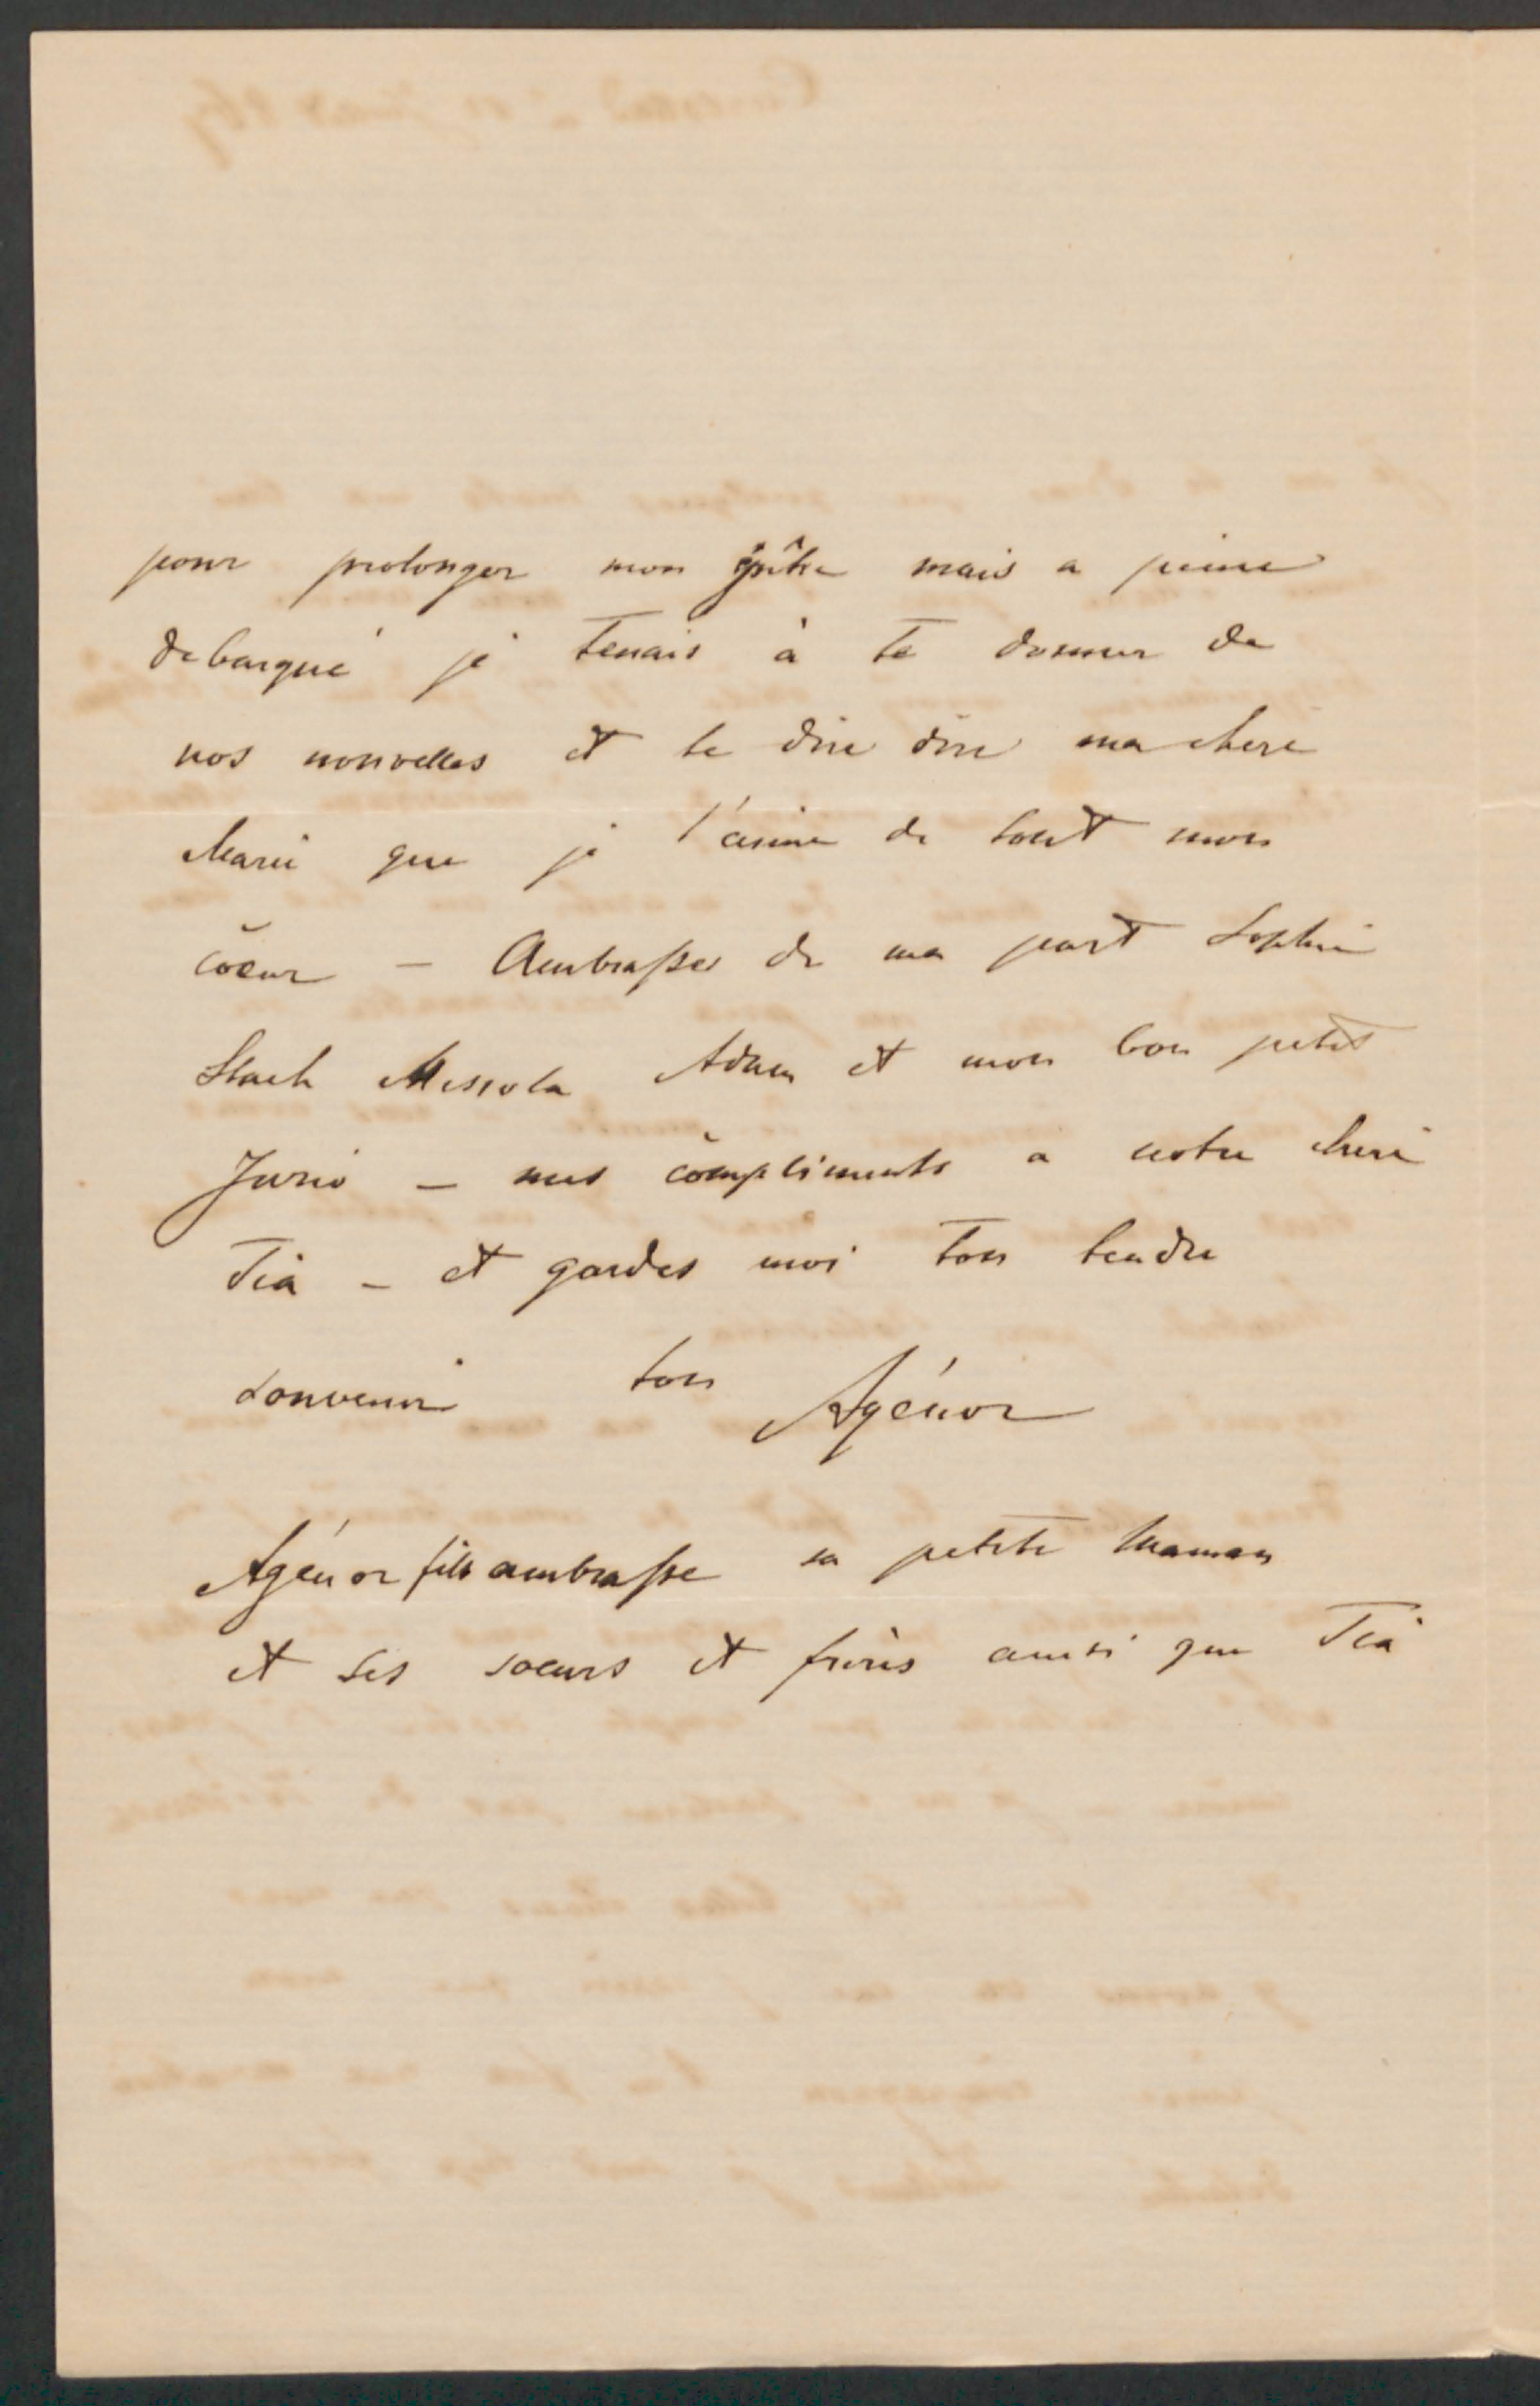 pour prolonger mon épître mais a peine
debarqué je tenais à te donner de
nos nouvelles et te dire dire ma chere
Marie que je t'aime de tout mon
cœur – Ambrasses de ma part Sophie
Stach Messola Adam et mon bon petit
Jurio – mes compliments a notre chere
Tia – et gardes moi ton tendre
souvenir ton Agénor
Agénor fils ambrasse sa petite Maman
et ses sœurs et frères ainsi que Tia